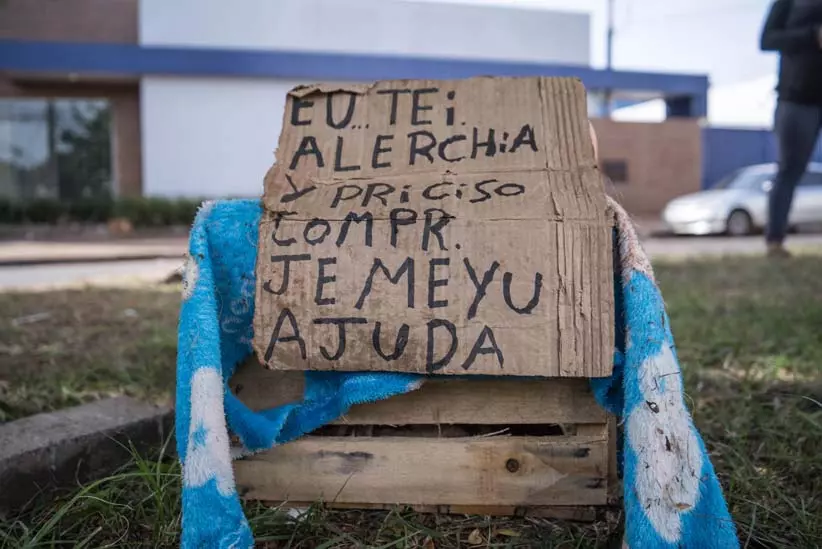 EU...TEi.
ALERCHiA
y PRiCiSO
COMPR.
JEMEYU
AJUDA